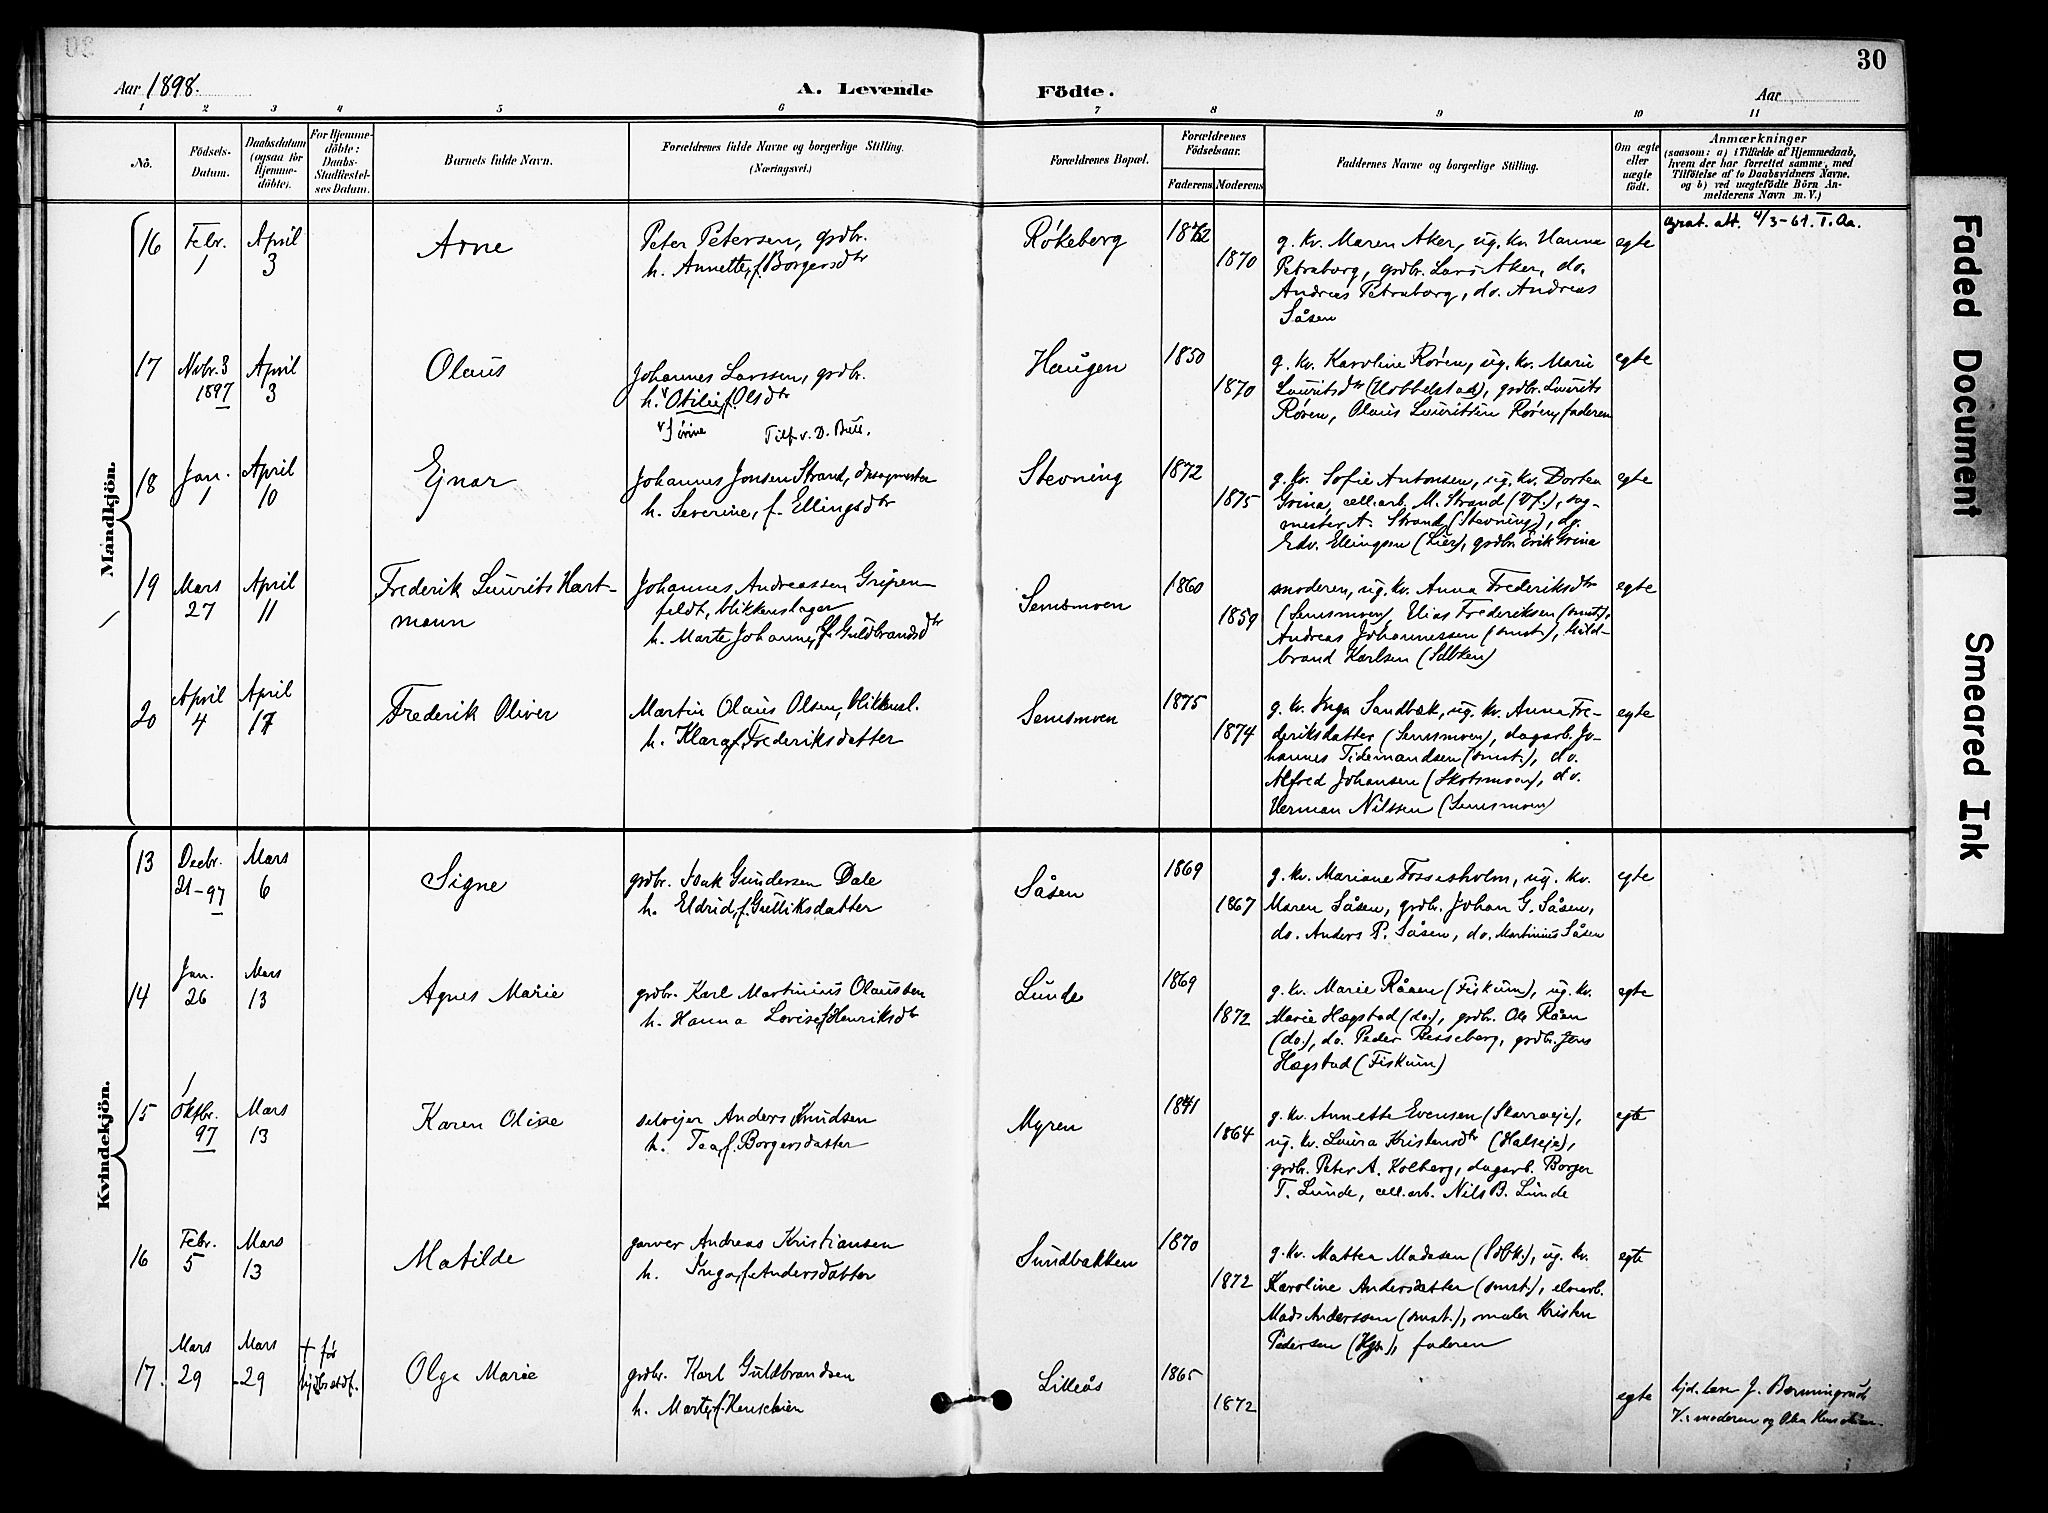 30
Aar 1898.
A. Levende
Födte.
Aar
1 2 3 4 5 6 7 8 9 10 11
Nô.
Födsels-
Datum.
Daabsdatum
(ogsaa for
Hjemme-
döbte).
For Hjemme-
döbte:
Daabs-
Stadfæstel-
ses Datum.
Barnets fulde Navn.
Forældrenes fulde Navne og borgerlige Stilling.
(Næringsvei.)
Forældrenes Bopæl.
Forældrenes
Födselsaar.
Faderens Moderens
Faddernes Navne og borgerlige Stilling.
Om ægte
eller
uægte
födt.
Anmærkninger
(saasom: a) i Tilfælde af Hjemmedaab,
hvem der har forrettet samme, med
Tilföielse af to Daabsvidners Navne.
og b) ved uægtefödte Börn An-
melderens Navn m. V.)
Mandkjön.
16
Febr.
1
April
3
Arne
Peter Petersen, grdbr.
h. Annette, f. Borgersdtr
Røkeberg
1872
1870
g. kv. Maren Aker, ug. kv. Hanna
Petraborg, grdbr. Lars Aker, do.
Andreas Petraborg, do. Andreas
Såsen
egte
att. 4/3-61. T. Aa.
17
Novbr. 3
1897
April
3
Olaus
Johannes Larssen, grdbr.
h. Otilie f. Olsdtr
v Jørine Tilf. v. D. Bull.
Haugen
1850
1870
g. kv. Karoline Røren, ug. kv. Marie
Lauritsdtr (Hobbelstad), grdbr. Laurits
Røren, Olaus Lauritsen Røren, faderen
egte
18
Jan.
1
April
10
Ejnar
Johannes Jonsen Strand, opsagmester
h. Severine, f. Ellingsdtr
Stevning
1872
1875
g. kv. Sofie Antonsen, ug. kv. Dortea
Grina, cell.arb. M. Strand (Vf.), sag-
mester A. Strand (Stevning), dg.
Edv. Ellingsen (Lier), grdbr. Erik Grina
egte
19
Mars
27
April
11
Frederik Laurits Hart-
mann
Johannes Andreassen Gripen-
feldt, blikkenslager
h. Marte Johanne, f. Guldbrandsdtr
Semsmoen
1860
1859
moderen, ug. kv. Anna Frederiksdtr
(Semsmoen), Elias Frederiksen (smst),
Andreas Johannessen (smst.), Guld-
brand Karlsen (Sdbken)
egte
20
April
4
April
17
Frederik Oliver
Martin Olaus Olsen, blikkensl.
h. Klara, f. Frederiksdatter
Semsmoen
1875
1874
g. kv. Inga Sandbæk, ug. kv. Anna Fre-
deriksdatter (Semsmoen), dagarb. Jo-
hannes Tidemandsen (smst.), do.
Alfred Johansen (Skotsmoen), do.
Herman Nilssen (Semsmoen)
egte
Kvindekjön.
13
Decbr.
21-97
Mars
6
Signe
grdbr. Isak Gundersen Dale
h. Eldrid, f. Gulliksdatter
Såsen
1869
1867
g. kv. Mariane Fossesholm, ug. kv.
Maren Såsen, grdbr. Johan G. Såsen,
do. Anders P. Såsen, do. Martinius Såsen
egte
14
Jan.
26
Mars
13
Agnes Marie
grdbr. Karl Martinius Olaussen
h. Hanna Lovise, f. Henriksdtr
Lunde
1869
1872
g. kv. Marie Råaen (Fiskum), ug. kv.
Marie Hægstad (do.), grdbr. Ole Råen
(do.), do. Peder Besseberg, grdbr. Jens
Hægstad (Fiskum)
egte
15
1
Oktbr.
97
Mars
13
Karen Olise
selvejer Anders Knudsen
h. Tea f. Borgersdatter
Myren
1841
1864
g. kv. Annette Evensen (Skarraeje),
ug. kv. Laura Kristensdtr (Halseje),
grdbr. Peter A. Kolberg, dagarb. Borger
T. Lunde, cell.arb. Nils B. Lunde
egte
16
Febr.
5
Mars
13
Matilde
garver Andreas Kristiansen
h. Inga, f. Andersdatter
Sundbakken
1870
1872
g. kv. Mattea Madsen (Sdbk.), ug. kv.
Karoline Andersdatter (smst.), elvearb.
Mads Anderssen (smst.), maler Kristen
Pedersen (Hgs.), faderen
egte
17.
Mars
29
Mars
29
+ før
Olga Marie
grdbr. Karl Guldbrandsen
h. Marte, f. Henschien
Lilleås
1865
1872
egte
hjd. J. Bermingrud
v/: moderen og Olea Henschien
Faded Document
Smeared Ink